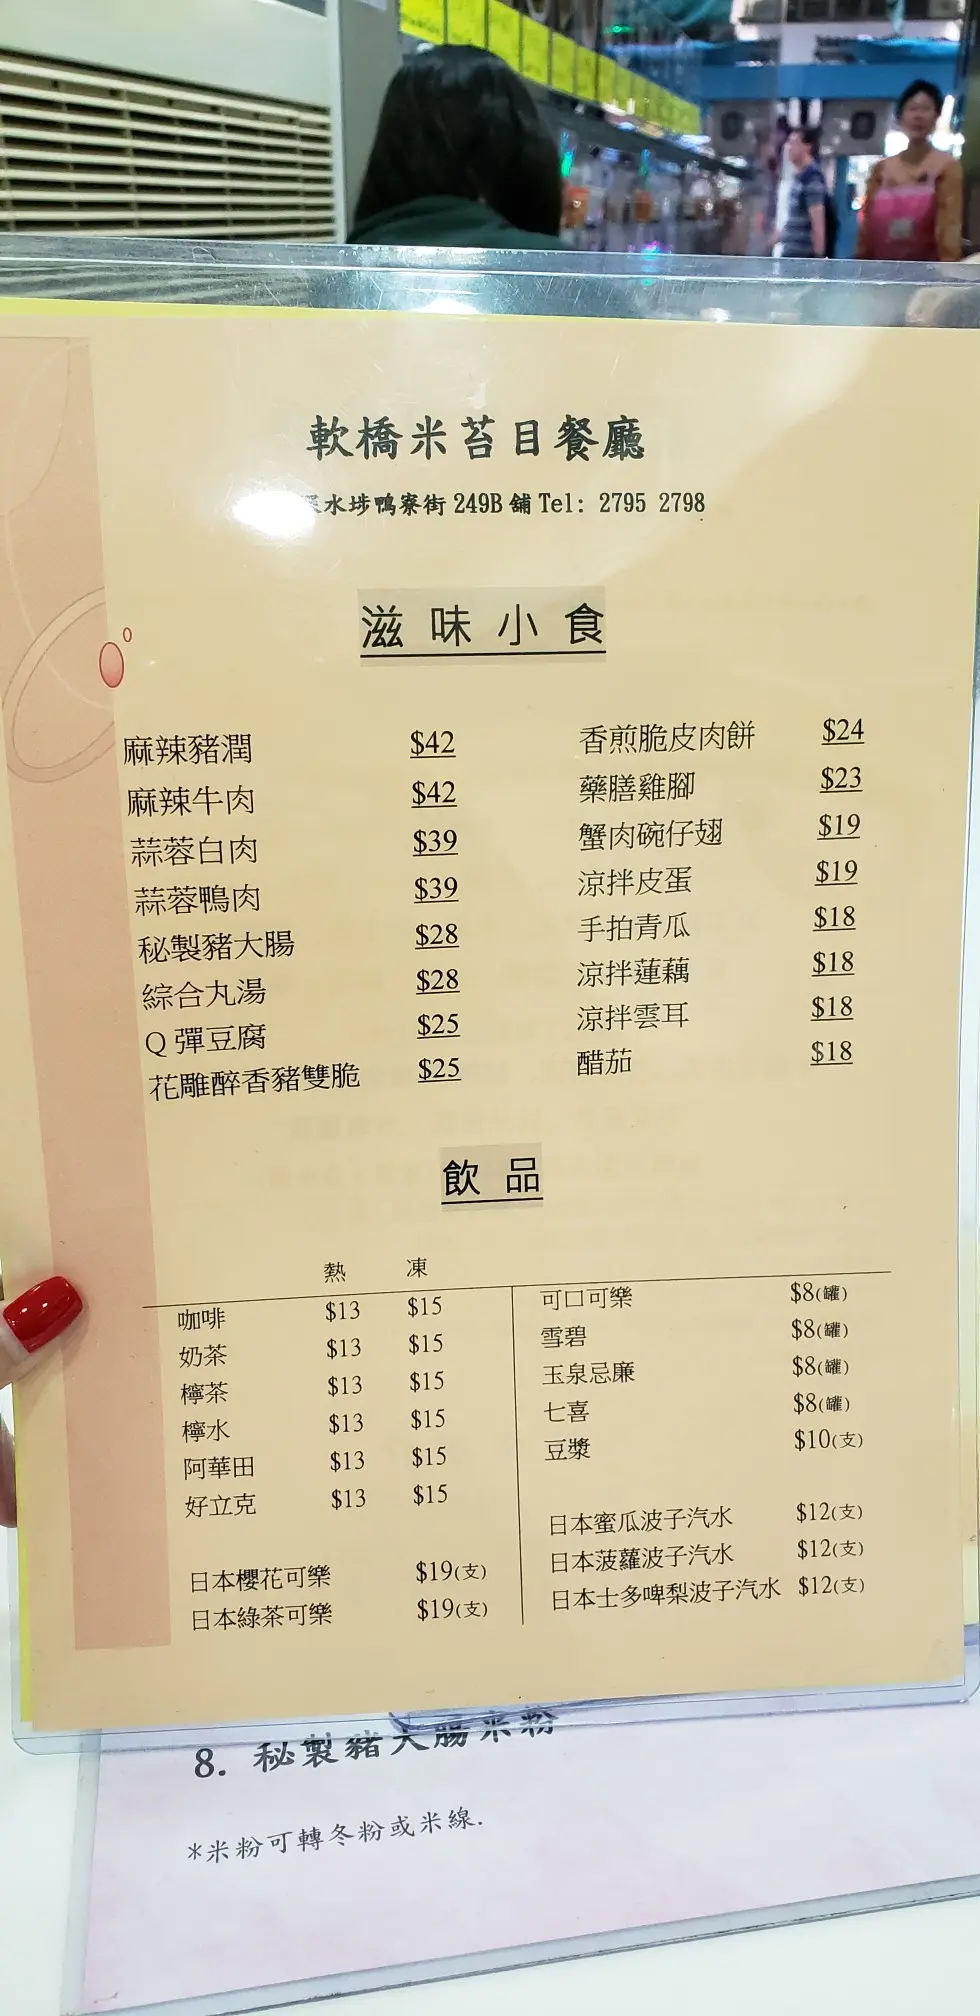 軟橋米苔目餐廳
水埗鴨寮街 249B 舖 Tel: 2795 2798
滋味小食
麻辣豬潤 $42
麻辣牛肉 $42
蒜蓉白肉 $39
蒜蓉鴨肉 $39
秘製豬大腸 $28
綜合丸湯 $28
Q 彈豆腐 $25
花雕醉香豬雙脆 $25
香煎脆皮肉餅 $24
藥膳雞腳 $23
蟹肉碗仔翅 $19
涼拌皮蛋 $19
手拍青瓜 $18
涼拌蓮藕 $18
涼拌雲耳 $18
醋茄 $18
飲品
熱 凍
咖啡 $13 $15
奶茶 $13 $15
檸茶 $13 $15
檸水 $13 $15
阿華田 $13 $15
好立克 $13 $15
日本櫻花可樂 $19(支)
日本綠茶可樂 $19(支)
可口可樂 $8(罐)
雪碧 $8(罐)
玉泉忌廉 $8(罐)
七喜 $8(罐)
豆漿 $10(支)
日本蜜瓜波子汽水 $12(支)
日本菠蘿波子汽水 $12(支)
日本士多啤梨波子汽水 $12(支)
8. 秘製豬大腸米粉
*米粉可轉冬粉或米線.